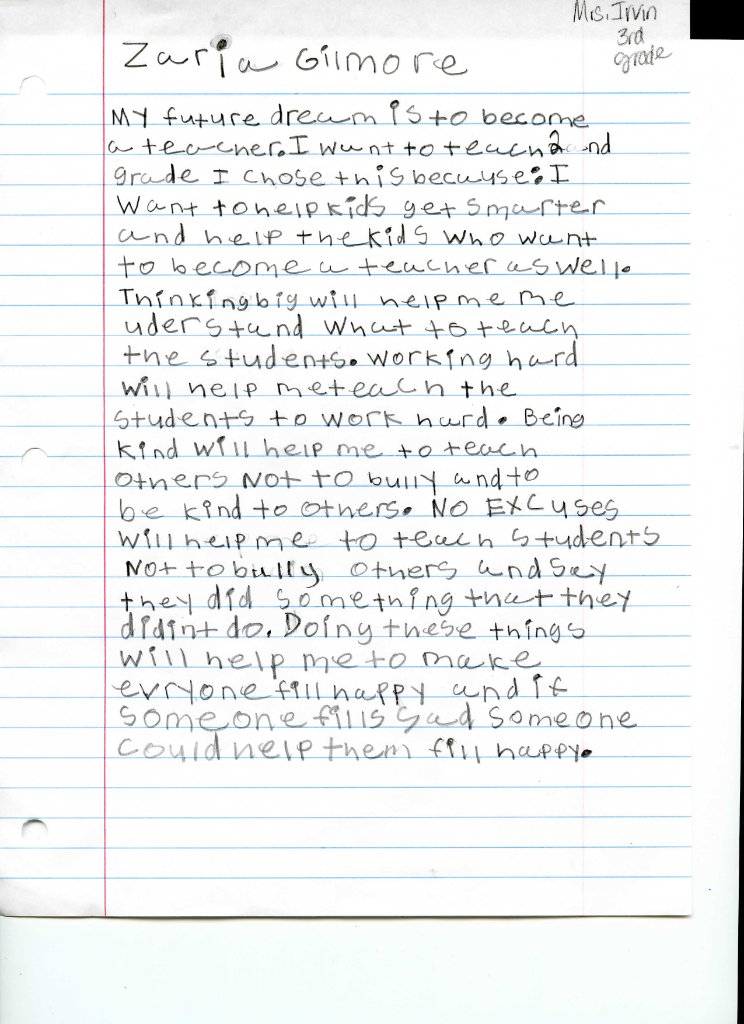 Mrs. Irvin
3rd
grade
Zaria Gilmore
MY future dream is to become
a teacher. I want to teach 2nd
grade I chose this because: I
Want to help kids get smarter
and help the kids who want
to become a teacher as well.
Thinking big will help me me
uderstand what to teach
the students. Working hard
will help me teach the
students to work hard. Being
kind will help me to teach
others Not to bully and to
be kind to others. NO EXCuses
will help me to teach students
Not to bully others and say
they did something that they
didint do. Doing these things
will help me to make
evryone fill happy and if
someone fills sad someone
could help them fill happy.